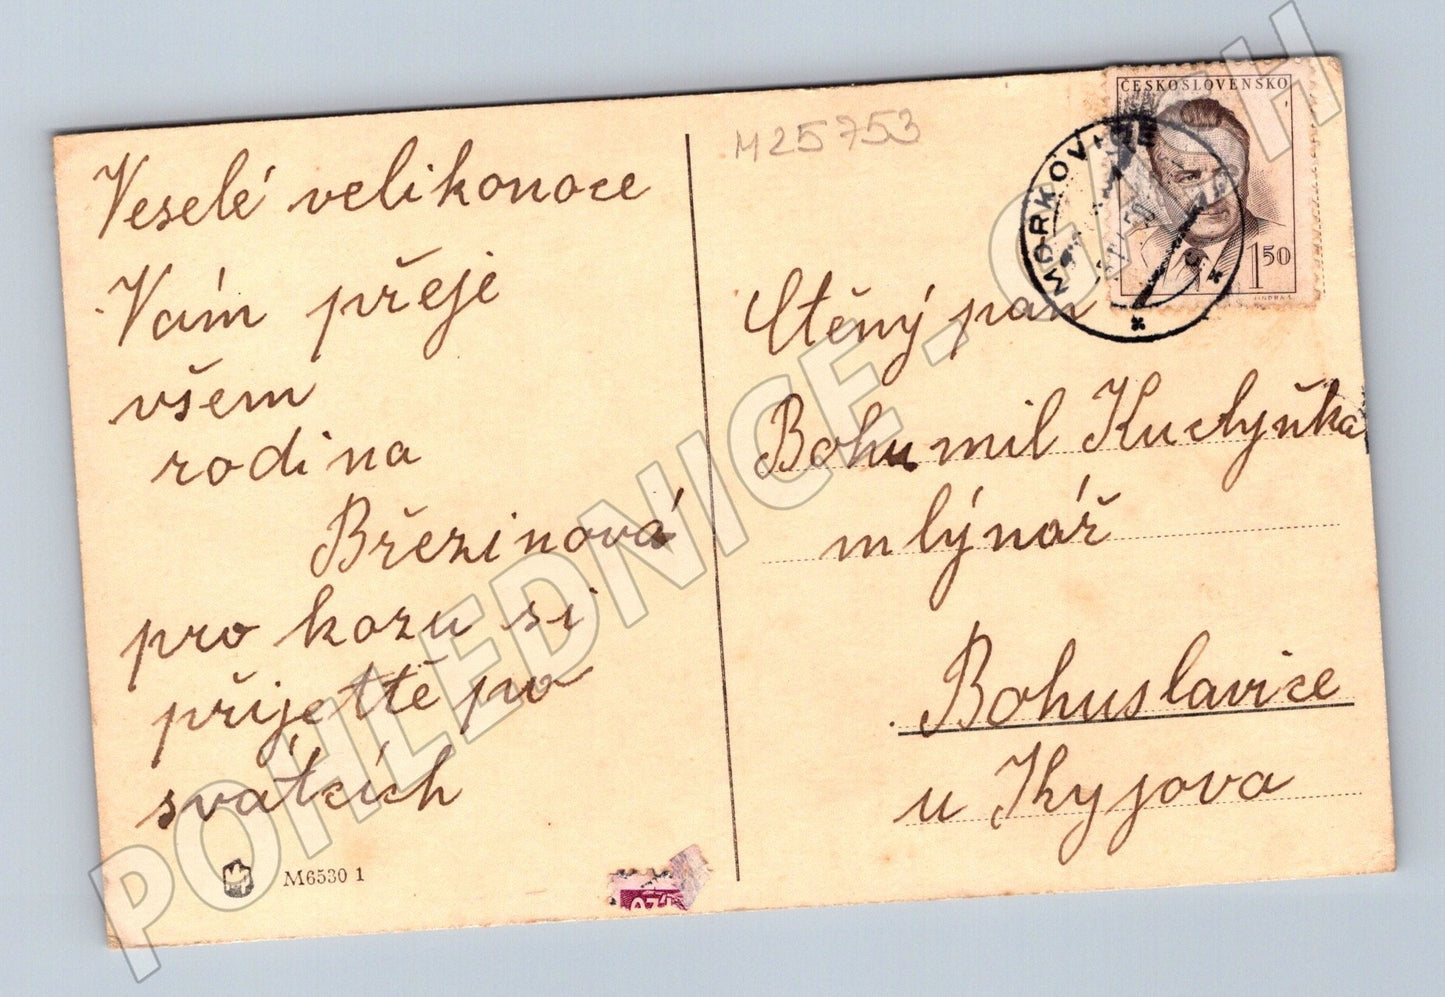 Veselé velikonoce
Vám přeje
všem
rodina
Březinová
pro kozu si
přijeďtě po
svátcích
M6530 1
M25753
ČESKOSLOVENSKO
1 50
JINDRA S.
MORKOVICE
Ctěný pan
Bohumil Kuchyňka
mlýnář
Bohuslavice
u Kyjova
POHLEDNICE - CASH